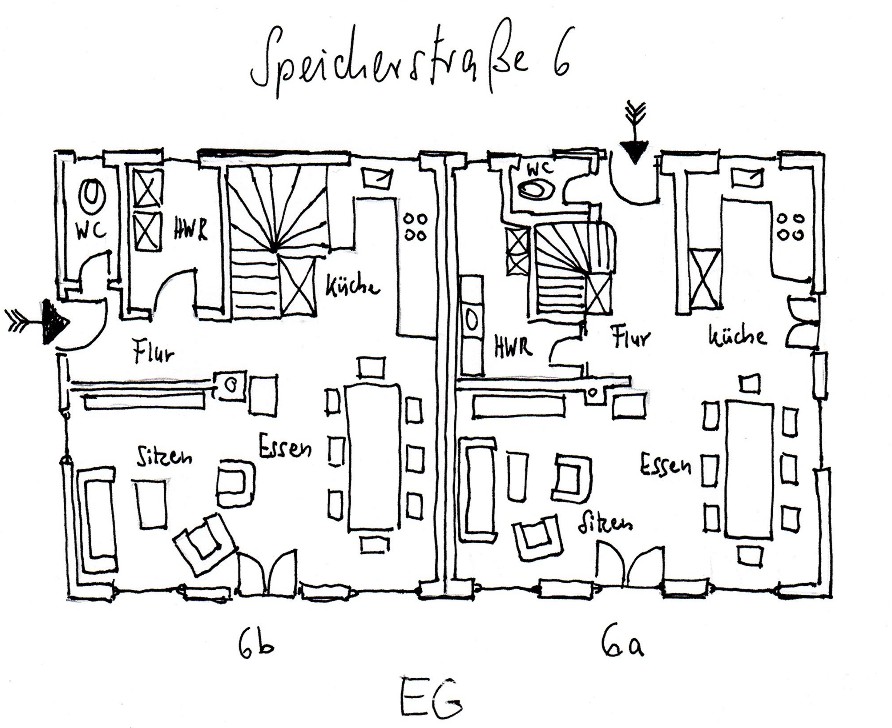 Speicherstraße 6
WC
HWR
Küche
Flur
Sitzen
Essen
WC
HWR
Flur
Küche
Essen
Sitzen
6b
6a
EG